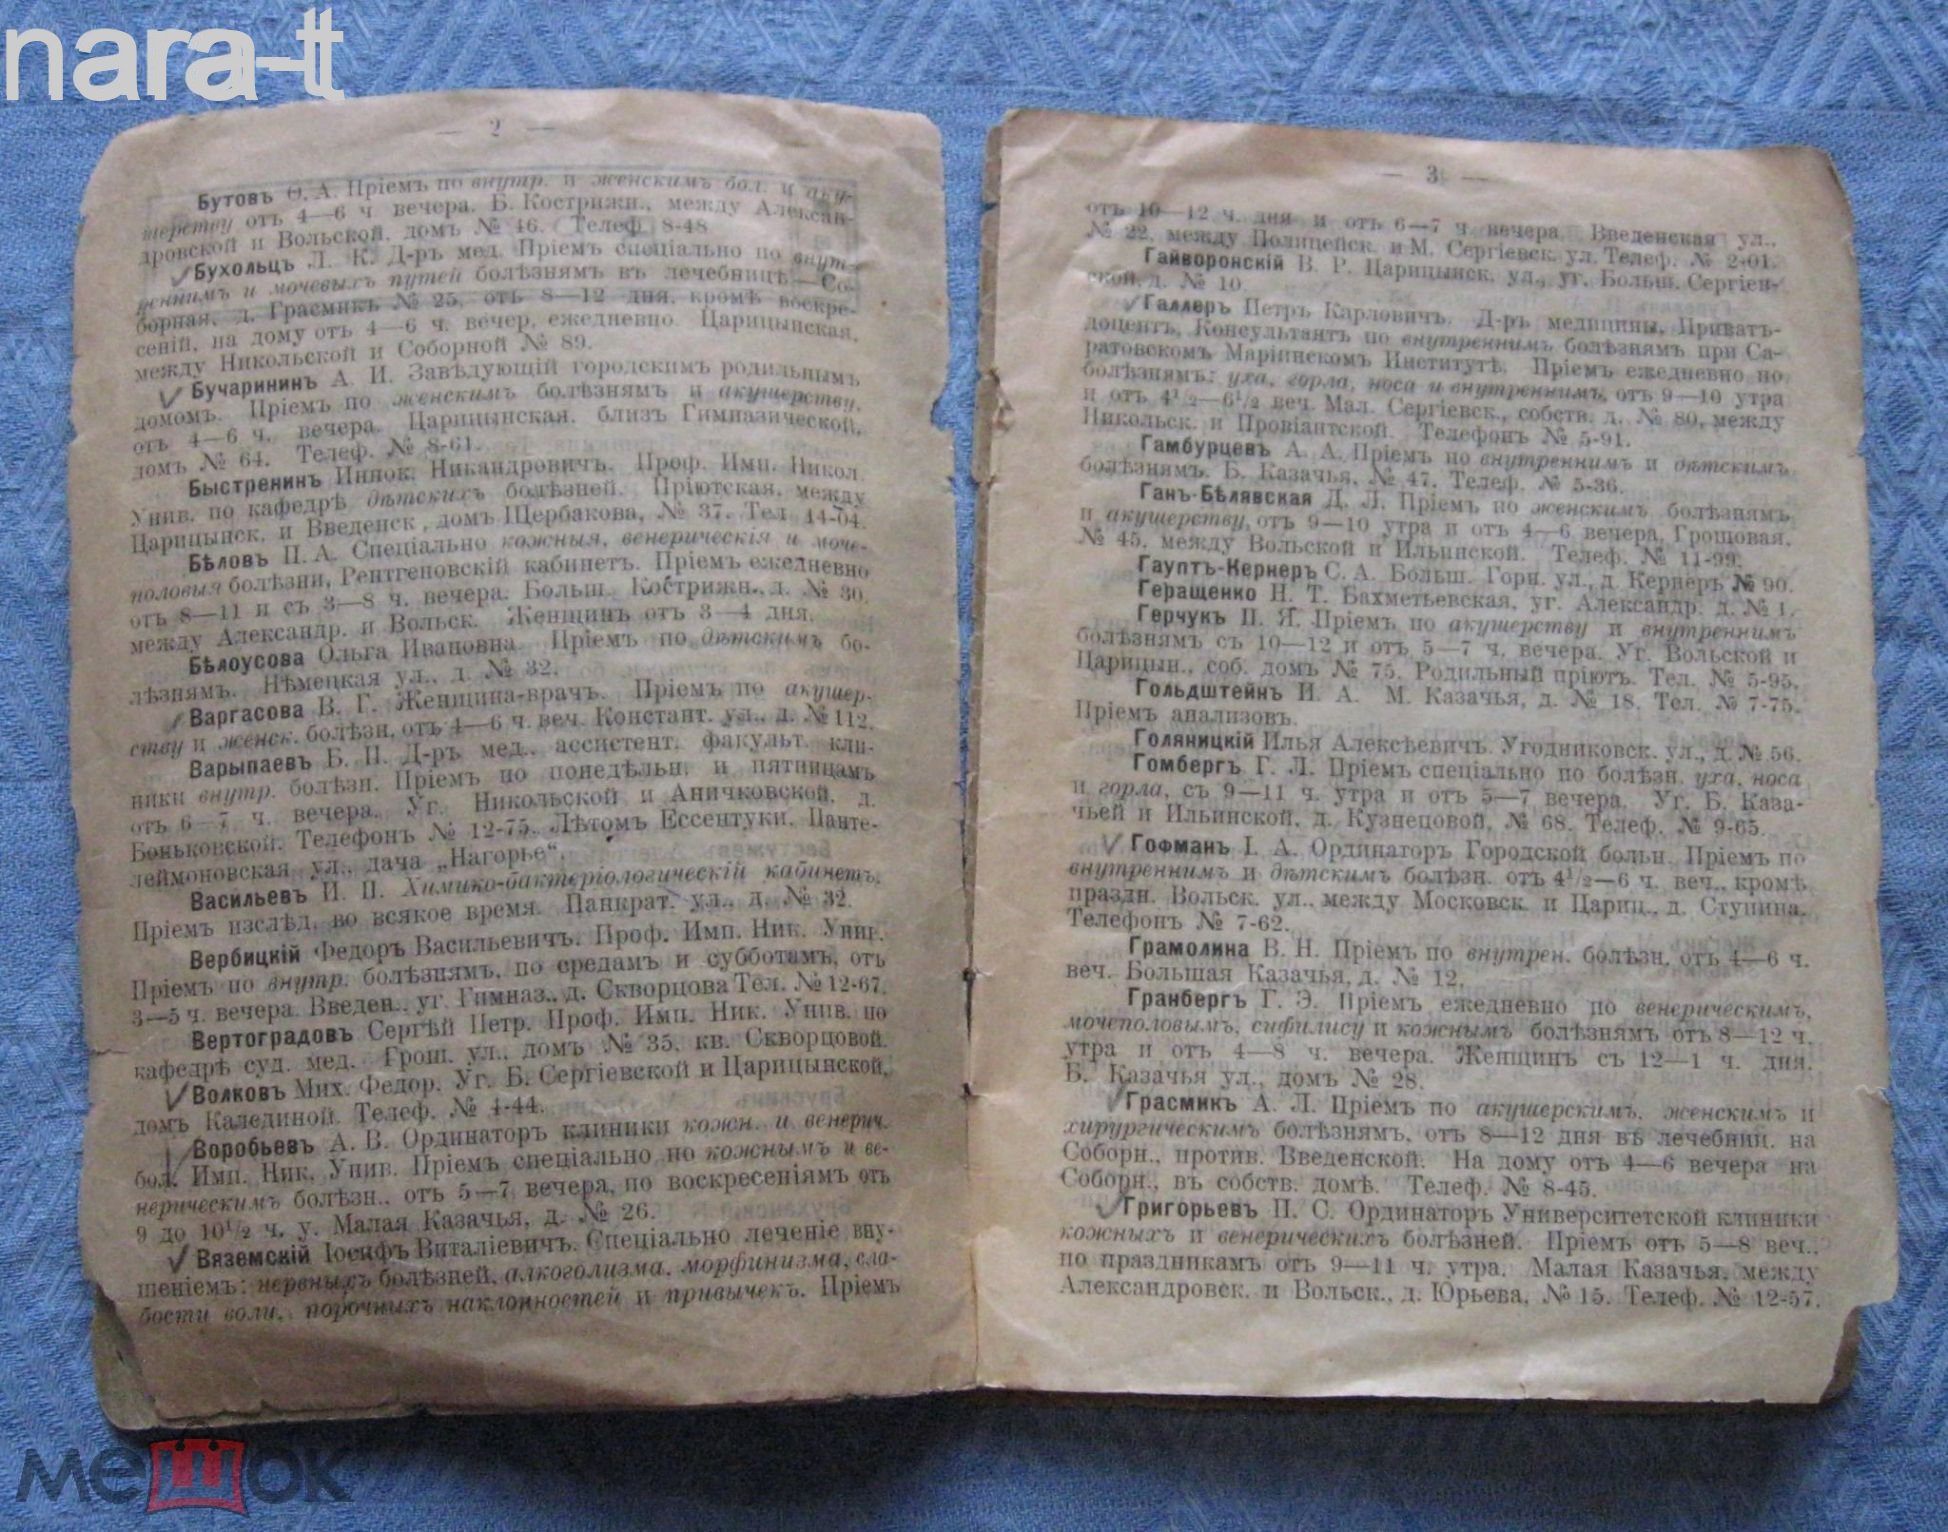 nara-t
— 2 —
Бутовъ Ѳ. А. Пріемъ по внутр. и женскимъ бол. и аку-
шерству отъ 4—6 ч вечера. Б. Кострижн., между Алексан-
дровской и Вольской, домъ № 46. Телеф 8-48
Бухольцъ Л. К. Д-ръ мед. Пріемъ спеціально по внут-
реннимъ и мочевыхъ путей болѣзнямъ въ лечебницѣ—Со-
борная, д. Грасмикъ № 25, отъ 8—12 дня, кромѣ воскре-
сеній, на дому отъ 4—6 ч. вечер, ежедневно. Царицынская,
между Никольской и Соборной № 89.
Бучарининъ А. И. Завѣдующій городскимъ родильнымъ
домомъ. Пріемъ по женскимъ болѣзнямъ и акушерству,
отъ 4—6 ч. вечера. Царицынская, близъ Гимназической,
домъ № 64. Телеф. № 8-61.
Быстренинъ Иннок. Никандровичъ. Проф. Имп. Никол
Унив. по кафедрѣ дѣтскихъ болѣзней. Пріютская, между
Царицынск. и Введенск, домъ Щербакова, № 37. Тел 14-04.
Бѣловъ П. А. Спеціально кожныя, венерическія и моче-
половыя болѣзни, Рентгеновскій кабинетъ. Пріемъ ежедневно
отъ 8—11 и съ 3—8 ч. вечера. Больш. Кострижн., д. № 30,
между Александр. и Вольск. Женщинъ отъ 3—4 дня.
Бѣлоусова Ольга Ивановна. Пріемъ по дѣтскимъ бо-
лѣзнямъ. Нѣмецкая ул., д. № 32.
Варгасова В. Г. Женщина-врачъ. Пріемъ по акушер-
ству и женск. болѣзн, отъ 4—6 ч. веч. Констант. ул., д. № 112.
Варыпаевъ Б. Н. Д-ръ мед., ассистент. факульт. кли-
ники внутр. болѣзн. Пріемъ по понедѣльн. и пятницамъ
отъ 6—7 ч. вечера. Уг. Никольской и Аничковской, д.
Боньковской. Телефонъ № 12-75. Лѣтомъ Ессентуки. Панте-
леймоновская ул., дача „Нагорье“.
Васильевъ И. П. Химико-бактеріологическій кабинетъ.
Пріемъ изслѣд. во всякое время. Панкрат. ул., д. № 32.
Вербицкій Федоръ Васильевичъ. Проф. Имп. Ник. Унив.
Пріемъ по внутр. болѣзнямъ, по средамъ и субботамъ, отъ
3—5 ч. вечера. Введен., уг. Гимназ., д. Скворцова Тел. № 12-67.
Вертоградовъ Сергѣй Петр. Проф. Имп. Ник. Унив. по
кафедрѣ суд. мед. Грош. ул., домъ № 35, кв. Скворцовой.
Волковъ Мих. Федор. Уг. Б. Сергіевской и Царицынской,
домъ Калединой. Телеф. № 4-44.
Воробьевъ А. В. Ординаторъ клиники кожн. и венерич.
бол. Имп. Ник. Унив. Пріемъ спеціально по кожнымъ и ве-
нерическимъ болѣзн., отъ 5—7 вечера, по воскресеніямъ отъ
9 до 10½ ч. у. Малая Казачья, д. № 26.
Вяземскій Іосифъ Виталіевичъ. Спеціально леченіе вну-
шеніемъ: нервныхъ болѣзней, алкоголизма, морфинизма, сла-
бости воли, порочныхъ наклонностей и привычекъ. Пріемъ
— 3 —
отъ 10—12 ч. дня и отъ 6—7 ч. вечера. Введенская ул.,
№ 22, между Полицейск. и М. Сергіевск. ул. Телеф. № 2-01.
Гайворонскій В. Р. Царицынск. ул., уг. Больш. Сергіев-
ской, д. № 10.
Галлеръ Петръ Карловичъ. Д-ръ медицины, Приватъ-
доцентъ, Консультантъ по внутреннимъ болѣзнямъ при Са-
ратовскомъ Маріинскомъ Институтѣ. Пріемъ ежедневно по
болѣзнямъ: уха, горла, носа и внутреннимъ, отъ 9—10 утра
и отъ 4½—6½ веч. Мал. Сергіевск., собств. д. № 80, между
Никольск. и Провіантской. Телефонъ № 5-91.
Гамбурцевъ А. А. Пріемъ по внутреннимъ и дѣтскимъ
болѣзнямъ. Б. Казачья, № 47. Телеф. № 5-36.
Ганъ-Бѣлявская Д. Л. Пріемъ по женскимъ болѣзнямъ
и акушерству, отъ 9—10 утра и отъ 4—6 вечера, Грошовая,
№ 45, между Вольской и Ильинской. Телеф. № 11-99.
Гауптъ-Кернеръ С. А. Больш. Горн. ул., д. Кернеръ № 90.
Геращенко Н. Т. Бахметьевская, уг. Александр. д. № 1.
Герчукъ П. Я. Пріемъ по акушерству и внутреннимъ
болѣзнямъ съ 10—12 и отъ 5—7 ч. вечера. Уг. Вольской и
Царицын., соб. домъ № 75. Родильный пріютъ. Тел. № 5-95.
Гольдштейнъ И. А. М. Казачья, д. № 18. Тел. № 7-75.
Пріемъ анализовъ.
Голяницкій Илья Алексѣевичъ. Угодниковск. ул., д. № 56.
Гомбергъ Г. Л. Пріемъ спеціально по болѣзн. уха, носа
и горла, съ 9—11 ч. утра и отъ 5—7 вечера. Уг. Б. Каза-
чьей и Ильинской, д. Кузнецовой, № 68. Телеф. № 9-65.
Гофманъ І. А. Ординаторъ Городской больн. Пріемъ по
внутреннимъ и дѣтскимъ болѣзн. отъ 4½—6 ч. веч., кромѣ
праздн. Вольск. ул., между Московск. и Цариц., д. Ступина.
Телефонъ № 7-62.
Грамолина В. Н. Пріемъ по внутрен. болѣзн. отъ 4—6 ч.
веч. Большая Казачья, д. № 12.
Гранбергъ Г. Э. Пріемъ ежедневно по венерическимъ,
мочеполовымъ, сифилису и кожнымъ болѣзнямъ отъ 8—12 ч.
утра и отъ 4—8 ч. вечера. Женщинъ съ 12—1 ч. дня.
Б. Казачья ул., домъ № 28.
Грасмикъ А. Л. Пріемъ по акушерскимъ, женскимъ и
хирургическимъ болѣзнямъ, отъ 8—12 дня въ лечебниц. на
Соборн., против. Введенской. На дому отъ 4—6 вечера на
Соборн., въ собств. домѣ. Телеф. № 8-45.
Григорьевъ П. С. Ординаторъ Университетской клиники
кожныхъ и венерическихъ болѣзней. Пріемъ отъ 5—8 веч.,
по праздникамъ отъ 9—11 ч. утра. Малая Казачья, между
Александровск. и Вольск., д. Юрьева, № 15. Телеф. № 12-57.
мешок